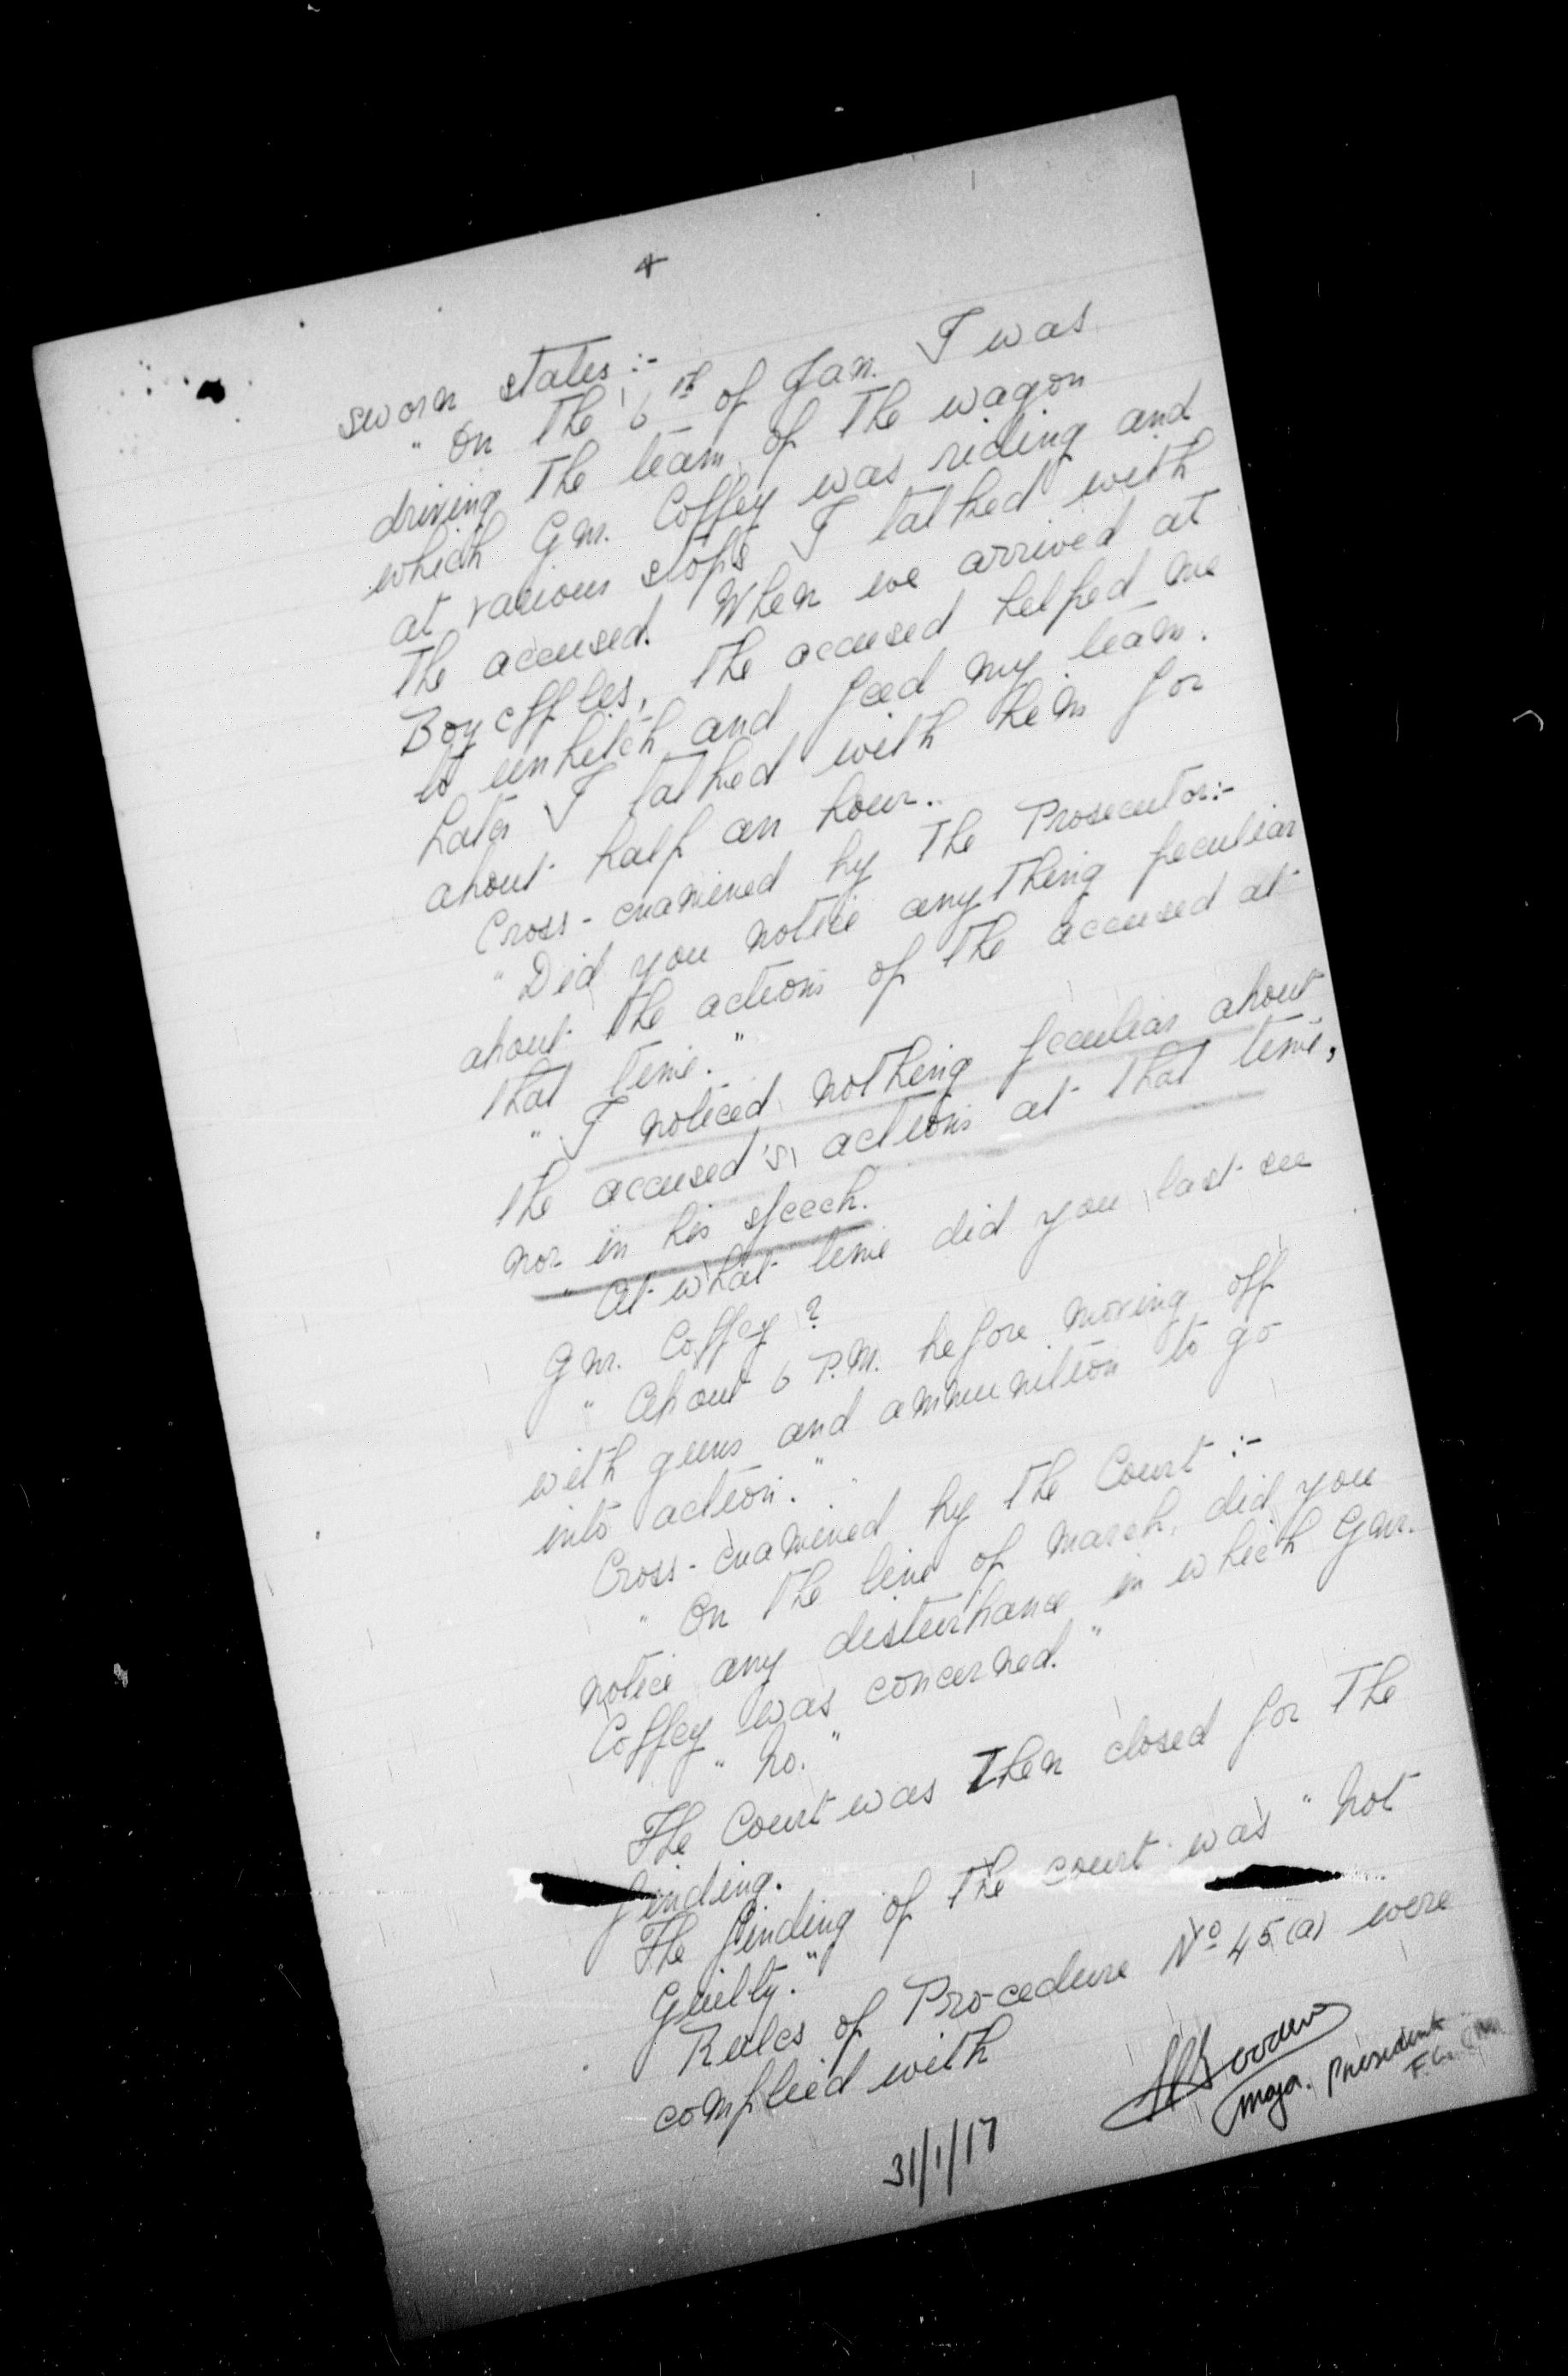 4
sworn states :-
" On the 6th of Jan. I was
driving the team of the wagon
which Gnr. Coffey was riding and
at various stops I talked with
the accused. When we arrived at
Boyeffles, the accused helped me
to unhitch and feed my team.
Later I talked with him for
about half an hour..
Cross-examined by the Prosecutor:-
" Did you notice anything peculiar
about the actions of the accused at
that time."
" I noticed nothing peculiar about
the accused's actions at that time,
nor in his speech.
" At what time did you last see
Gnr. Coffey ?
" About 6 P.M. before moving off
with guns and ammunition to go
into action."
Cross-examined by the Court :-
" On the line of march, did you
notice any disturbance in which Gnr.
Coffey was concerned."
" No."
The Court was then closed for the
finding.
The finding of the court was " Not
Guilty."
Rules of Procedure No 45(a) were
complied with
Major. President
31/1/17